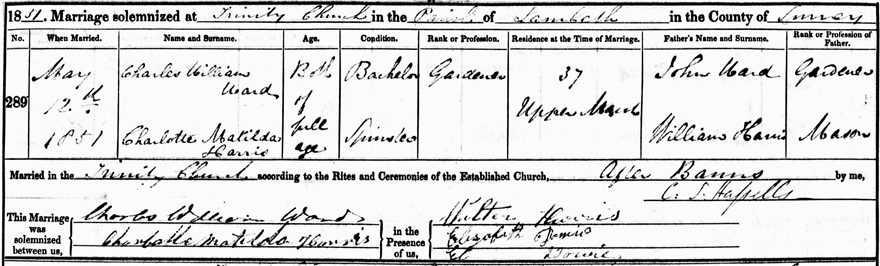 1851. Marriage solemnized at Trinity Church in the Parish of Lambeth in the County of Surrey
No. When Married. Name and Surname. Age. Condition. Rank or Profession. Residence at the Time of Marriage. Father's Name and Surname. Rank or Profession of Father.
289 May 12th 1851
Charles William Ward Both of full age Bachelor Gardener 37 Upper John Ward Gardener
Charlotte Matilda Harris Spinster William Harris Mason
Married in the Trinity Church according to the Rites and Ceremonies of the Established Church, After Banns by me,
C. S.
This Marriage was solemnized between us,
Charles William Ward
Charlotte Matilda Harris
in the Presence of us,
Harris
Elizabeth